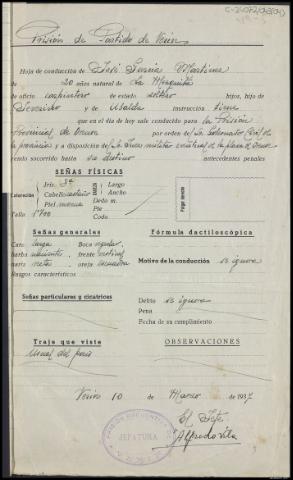 Prisión de Partido de Verín
Hoja de conducción de José García Martínez
de 20 años natural de La Mezquita
de oficio carpintero de estado soltero hijos, hijo de
Severino y de Ubalda instrucción tiene
que en el día de hoy sale conducido para la Prisión
Provincial de Orense por orden del Sr. Gobernador Civil de
la provincia y a disposición de
siendo socorrido hasta su destino antecedentes penales
SEÑAS FÍSICAS
Coloración
Iris 3º
Cabello castaño
Piel morena
Talla 1'700
Largo
Ancho
Dedo m.
Pie
Codo
Señas generales
Cara larga Boca regular
barba naciente, frente vertical
nariz recta oreja
Rasgos característicos
Fórmula dactiloscópica
Motivo de la conducción se ignora
Señas particulares y cicatrices
Delito se ignora
Pena
Fecha de su cumplimiento
Traje que viste
Usual del país
OBSERVACIONES
Verín 10 de Marzo de 1937
El Jefe
Alfredo Vila
JEFATURA